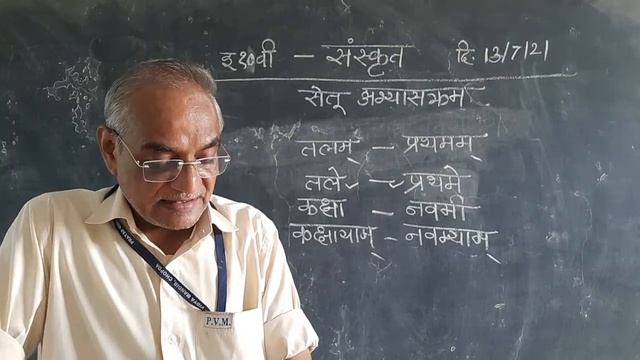 इ १०वी – संस्कृत दि. 13/7/21
सेतू अभ्यासक्रम
तलम् – प्रथमम्
तले – प्रथमे
कक्षा – नवमी
कक्षायाम् – नवम्याम्
P.V.M.